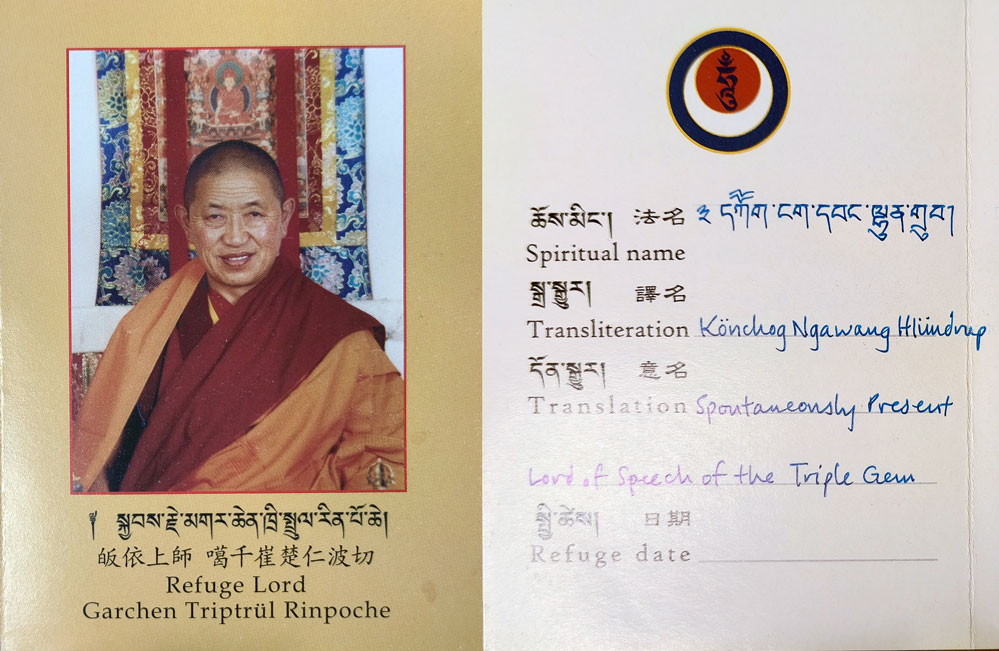 ༈ སྐྱབས་རྗེ་མགར་ཆེན་ཁྲི་སྤྲུལ་རིན་པོ་ཆེ།
皈依上師 噶千崔楚仁波切
Refuge Lord
Garchen Triptrül Rinpoche
ཆོས་མིང་། 法名 དཀོཾག་ངག་དབང་ལྷུན་གྲུབ།
Spiritual name
སྒྲ་སྒྱུར། 譯名
Transliteration Könchog Ngawang Hlündrup
དོན་སྒྱུར། 意名
Translation Spontaneously Present
Lord of Speech of the Triple Gem
སྤྱི་ཚེས། 日期
Refuge date